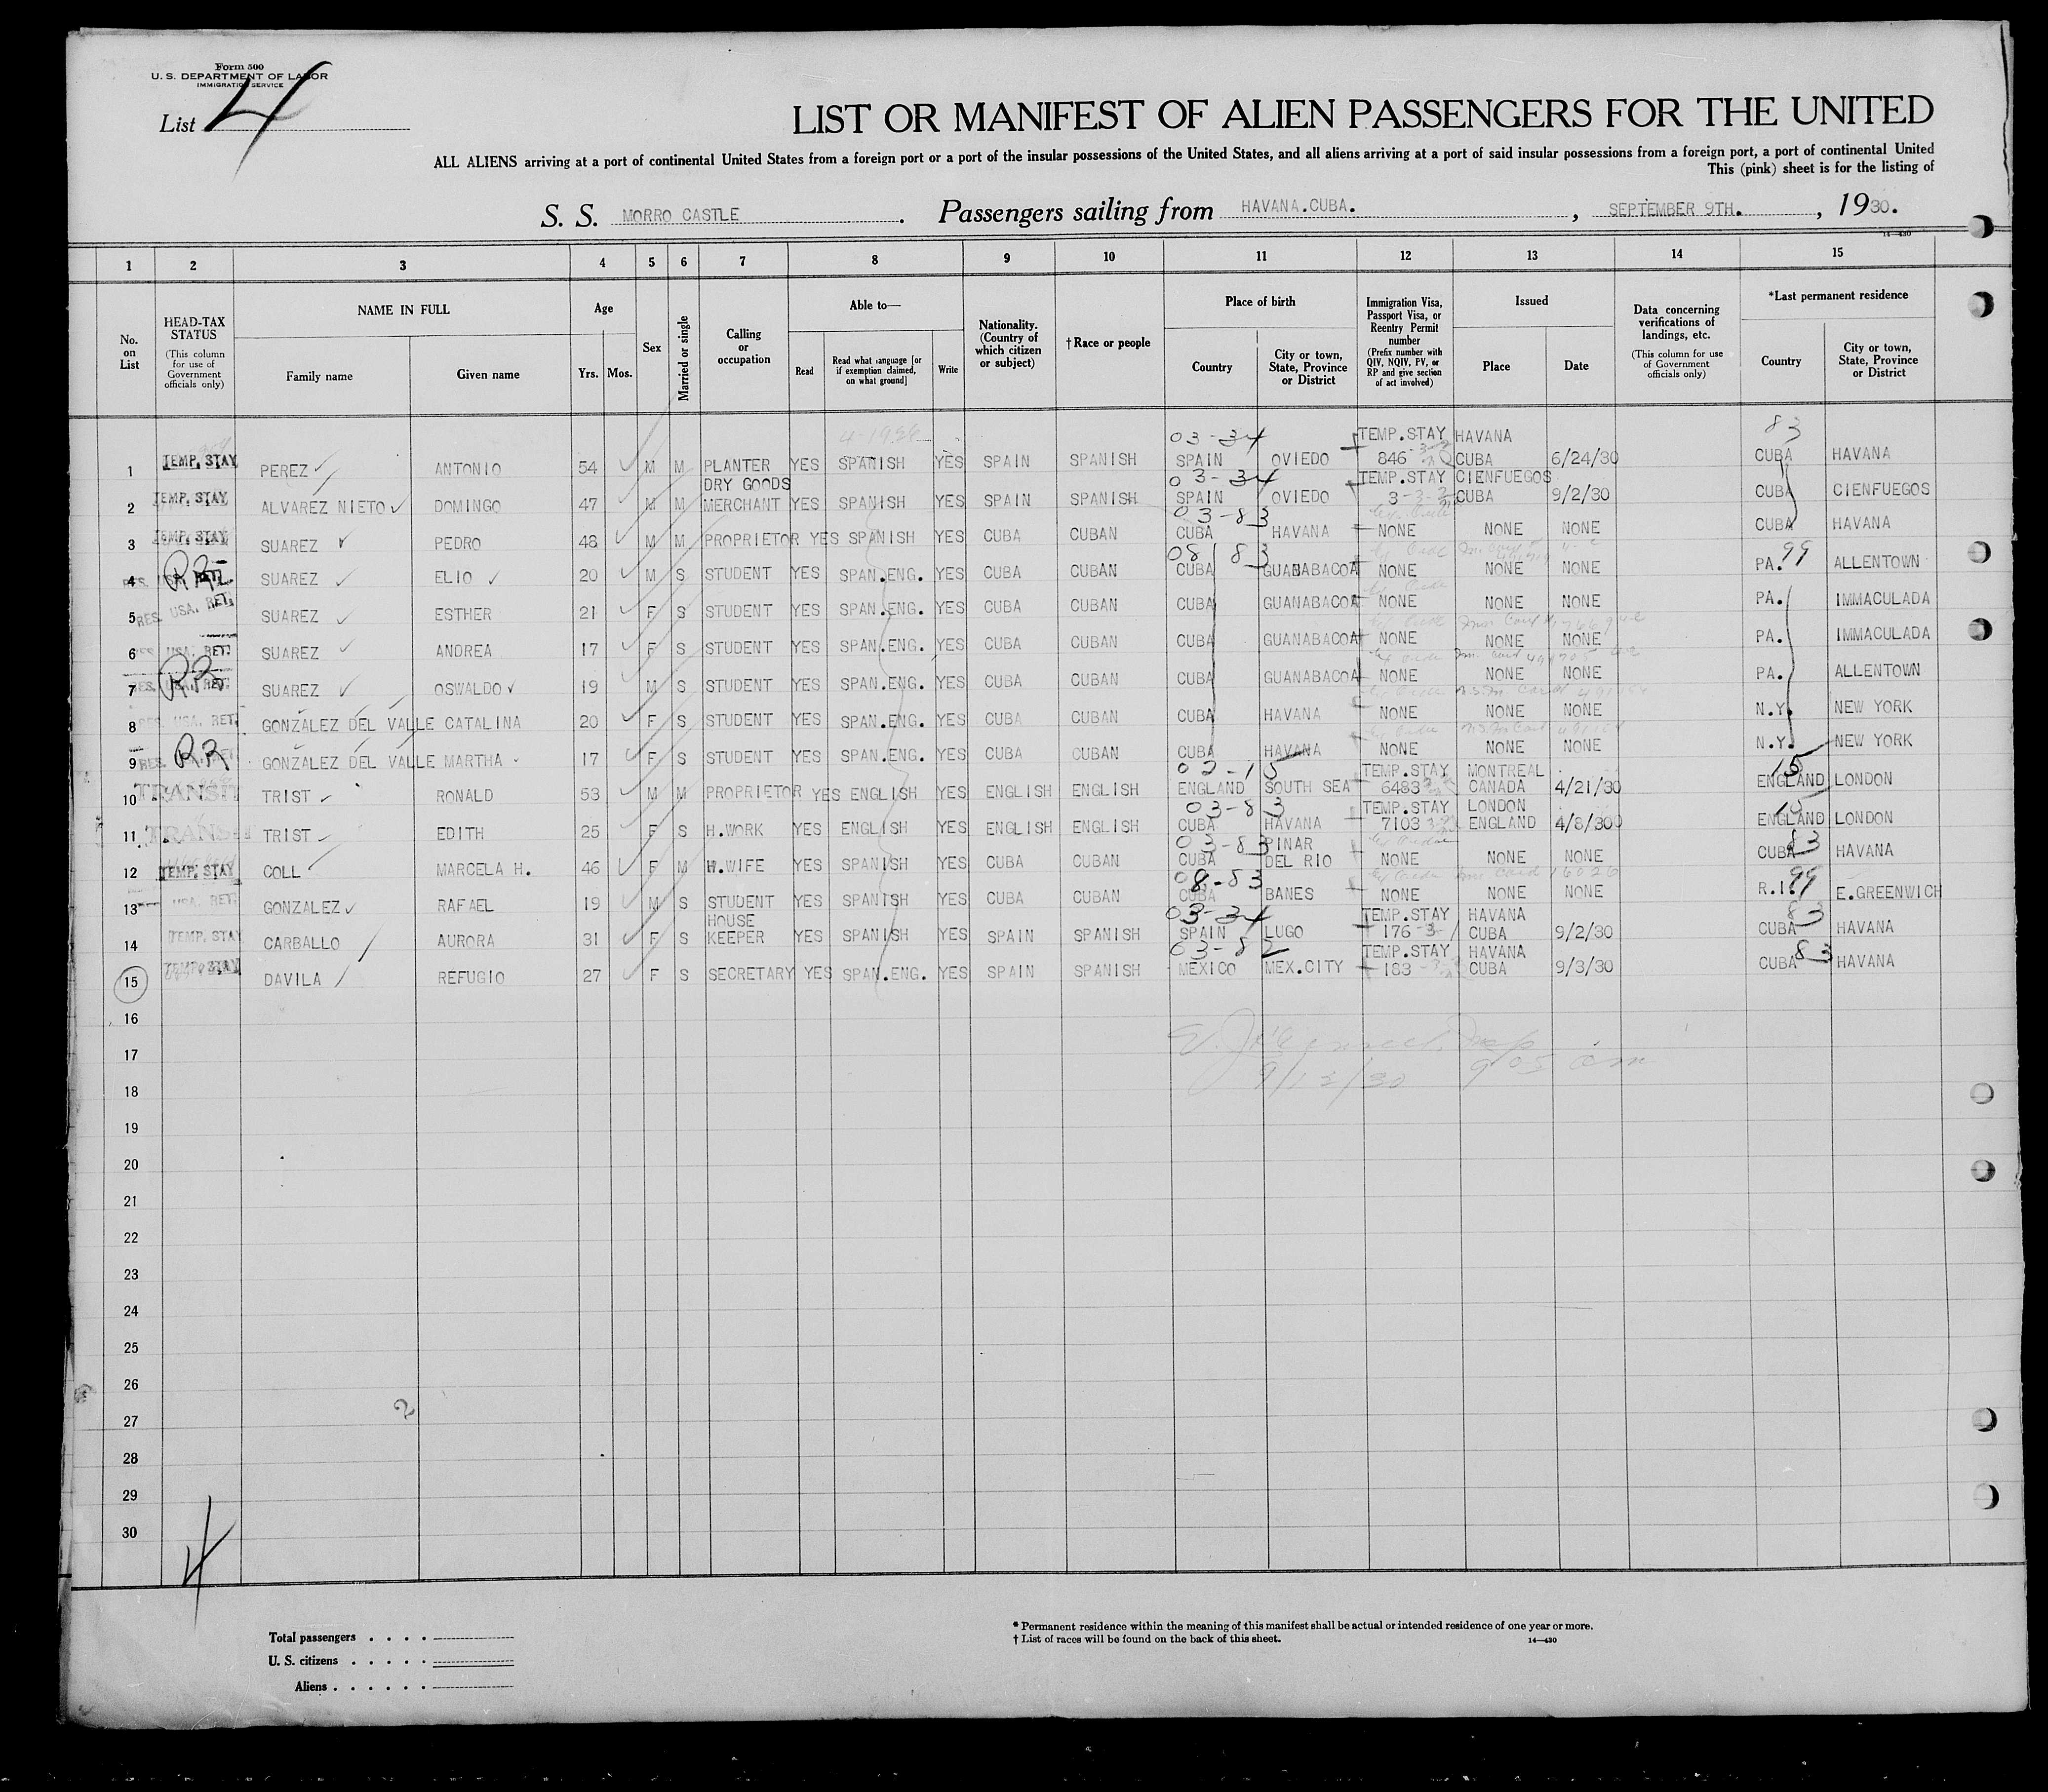 Form 500
U. S. DEPARTMENT OF LABOR
IMMIGRATION SERVICE
List 4
LIST OR MANIFEST OF ALIEN PASSENGERS FOR THE UNITED
ALL ALIENS arriving at a port of continental United States from a foreign port or a port of the insular possessions of the United States, and all aliens arriving at a port of said insular possessions from a foreign port, a port of continental United
This (pink) sheet is for the listing of
S. S. MORRO CASTLE . Passengers sailing from HAVANA.CUBA. , SEPTEMBER 9TH. , 1930.
14—430
1 2 3 4 5 6 7 8 9 10 11 12 13 14 15
No. on List
HEAD-TAX STATUS
(This column for use of Government officials only)
NAME IN FULL
Family name
Given name
Age
Yrs.
Mos.
Sex
Married or single
Calling or occupation
Able to—
Read
Read what language [or if exemption claimed, on what ground]
Write
Nationality. (Country of which citizen or subject)
†Race or people
Place of birth
Country
City or town, State, Province or District
Immigration Visa, Passport Visa, or Reentry Permit number
(Prefix number with QIV, NQIV, PV, or RP and give section of act involved)
Issued
Place
Date
Data concerning verifications of landings, etc.
(This column for use of Government officials only)
*Last permanent residence
Country
City or town, State, Province or District
03-34 TEMP.STAY HAVANA 83
1 TEMP. STAY PEREZ ANTONIO 54 M M PLANTER YES SPANISH YES SPAIN SPANISH SPAIN OVIEDO 846 CUBA 6/24/30 CUBA HAVANA
DRY GOODS 03-34 TEMP.STAY CIENFUEGOS
2 TEMP. STAY ALVAREZ NIETO DOMINGO 47 M M MERCHANT YES SPANISH YES SPAIN SPANISH SPAIN OVIEDO 3 CUBA 9/2/30 CUBA CIENFUEGOS
03-83
3 TEMP. STAY SUAREZ PEDRO 48 M M PROPRIETOR YES SPANISH YES CUBA CUBAN CUBA HAVANA NONE NONE NONE CUBA HAVANA
08 83 99
4 RES. USA. RET. SUAREZ ELIO 20 M S STUDENT YES SPAN.ENG. YES CUBA CUBAN CUBA GUANABACOA NONE NONE NONE PA. ALLENTOWN
5 RES. USA. RET. SUAREZ ESTHER 21 F S STUDENT YES SPAN.ENG. YES CUBA CUBAN CUBA GUANABACOA NONE NONE NONE PA. IMMACULADA
6 RES. USA. RET. SUAREZ ANDREA 17 F S STUDENT YES SPAN.ENG. YES CUBA CUBAN CUBA GUANABACOA NONE NONE NONE PA. IMMACULADA
7 RES. USA. RET. SUAREZ OSWALDO 19 M S STUDENT YES SPAN.ENG. YES CUBA CUBAN CUBA GUANABACOA NONE NONE NONE PA. ALLENTOWN
8 RES. USA. RET. GONZALEZ DEL VALLE CATALINA 20 F S STUDENT YES SPAN.ENG. YES CUBA CUBAN CUBA HAVANA NONE NONE NONE N.Y. NEW YORK
9 RES. RR GONZALEZ DEL VALLE MARTHA 17 F S STUDENT YES SPAN.ENG. YES CUBA CUBAN CUBA HAVANA NONE NONE NONE N.Y. NEW YORK
02-15 TEMP.STAY MONTREAL 15
10 TRANSIT TRIST RONALD 53 M M PROPRIETOR YES ENGLISH YES ENGLISH ENGLISH ENGLAND SOUTH SEA 6483 CANADA 4/21/30 ENGLAND LONDON
03-83 TEMP.STAY LONDON 15
11 TRANSIT TRIST EDITH 25 F S H.WORK YES ENGLISH YES ENGLISH ENGLISH CUBA HAVANA 7103 ENGLAND 4/8/30 ENGLAND LONDON
03-83 PINAR 83
12 TEMP. STAY COLL MARCELA H. 46 F M H.WIFE YES SPANISH YES CUBA CUBAN CUBA DEL RIO NONE NONE NONE CUBA HAVANA
08-83 99
13 USA. RET. GONZALEZ RAFAEL 19 M S STUDENT YES SPANISH YES CUBA CUBAN CUBA BANES NONE NONE NONE R.I. E.GREENWICH
HOUSE 03-34 TEMP.STAY HAVANA 83
14 TEMP. STAY CARBALLO AURORA 31 F S KEEPER YES SPANISH YES SPAIN SPANISH SPAIN LUGO 176 CUBA 9/2/30 CUBA HAVANA
03-82 TEMP.STAY HAVANA 83
15 TEMP. STAY DAVILA REFUGIO 27 F S SECRETARY YES SPAN.ENG. YES SPAIN SPANISH MEXICO MEX.CITY 183 CUBA 9/3/30 CUBA HAVANA
16
17
9/13/30 9 05 am
18
19
20
21
22
23
24
25
26
27
28
29
30
4
Total passengers . . . .
U. S. citizens . . . . .
Aliens . . . . . .
* Permanent residence within the meaning of this manifest shall be actual or intended residence of one year or more.
† List of races will be found on the back of this sheet.
14—430